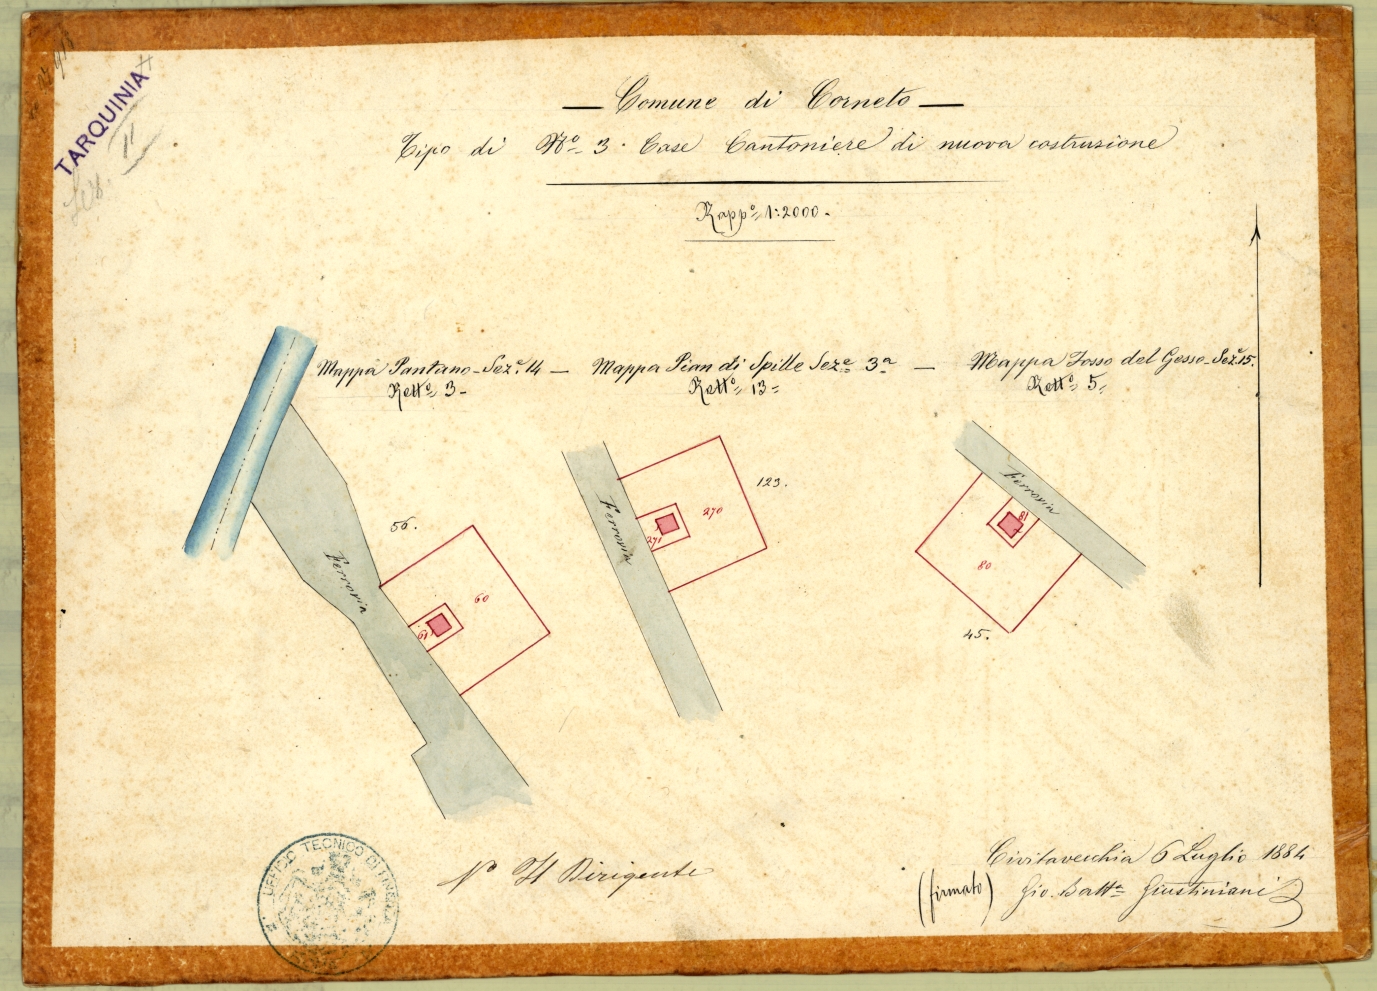 TARQUINIA
11
— Comune di Corneto —
Tipo di Nº 3. Case Cantoniere di nuova costruzione
Rappº 1:2000.
Mappa Pantano - Sezᵉ 14 —
Rettº 3 -
Mappa Pian di Spille Sezᵉ 3ª —
Rettº 13
Mappa Fosso del Gesso - Sezᵉ 15.
Rettº 5
56.
Ferrovia
60
61
Ferrovia
123.
270
271
Ferrovia
81
80
45.
UFFICIO TECNICO DI FINANZA
Vº Il Dirigente
Civitavecchia 6 Luglio 1884
(firmato) Gio. Battª Giustiniani